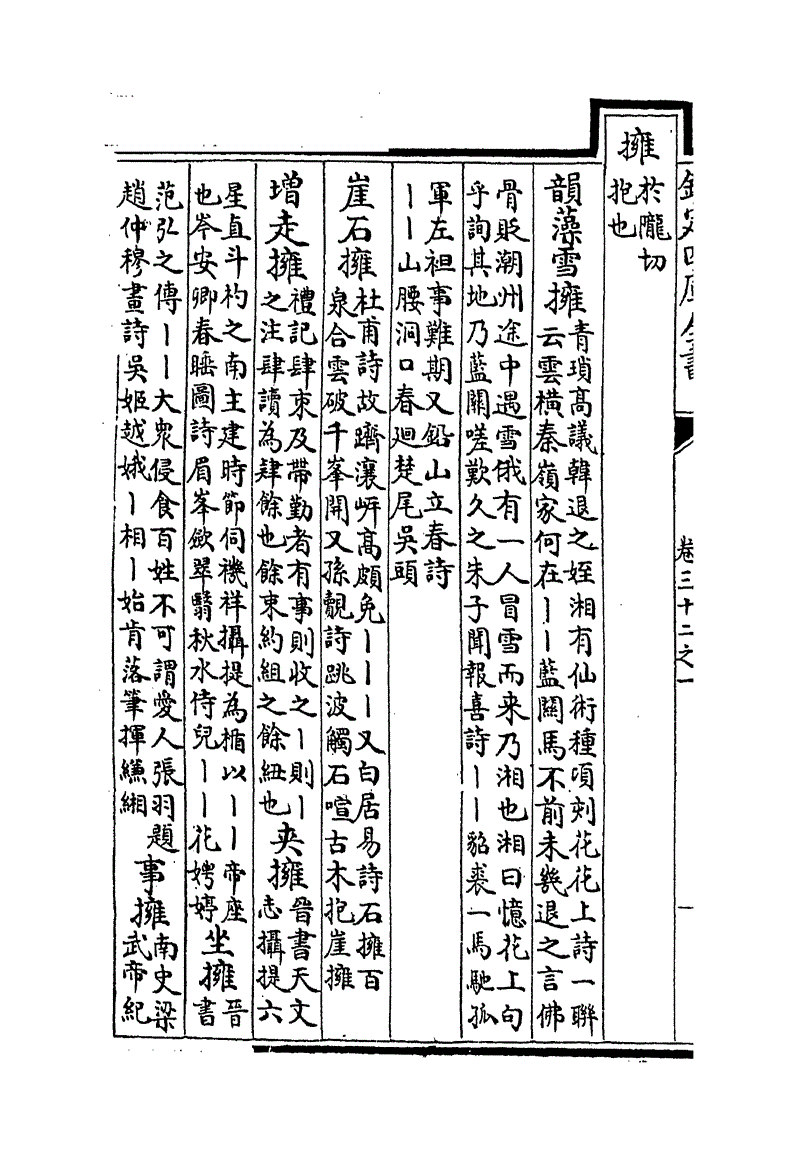 欽定四庫全書
卷三十二之一
擁於隴切
抱也
韻藻雪擁青瑣高議韓退之姪湘有仙術種頃刻花花上詩一聯
云雲橫秦嶺家何在丨丨藍關馬不前未幾退之言佛
骨貶潮州途中遇雪俄有一人冒雪而来乃湘也湘曰憶花上句
乎詢其地乃藍關嗟歎久之朱子聞報喜詩丨丨貂裘一馬馳孤
軍左袒事難期又鉛山立春詩
丨丨山腰洞口春廻楚尾吳頭
崖石擁杜甫詩故躋瀼岍高頗免丨丨丨又白居易詩石擁百
泉合雲破千峯開又孫覿詩跳波觸石喧古木抱崖擁
增走擁禮記肆束及帶勤者有事則收之丨則丨
之注肆讀為肄餘也餘束約組之餘紐也夾擁晉書天文
志攝提六
星直斗杓之南主建時節伺禨祥攝提為楯以丨丨帝座
也岑安卿春睡圖詩眉峯歛翠翳秋水侍兒丨丨花娉婷坐擁晉
書
范弘之傳丨丨大衆侵食百姓不可謂愛人張羽題
趙仲穆畫詩吳姬越娥丨相丨始肯落筆揮縑緗事擁南史梁
武帝紀